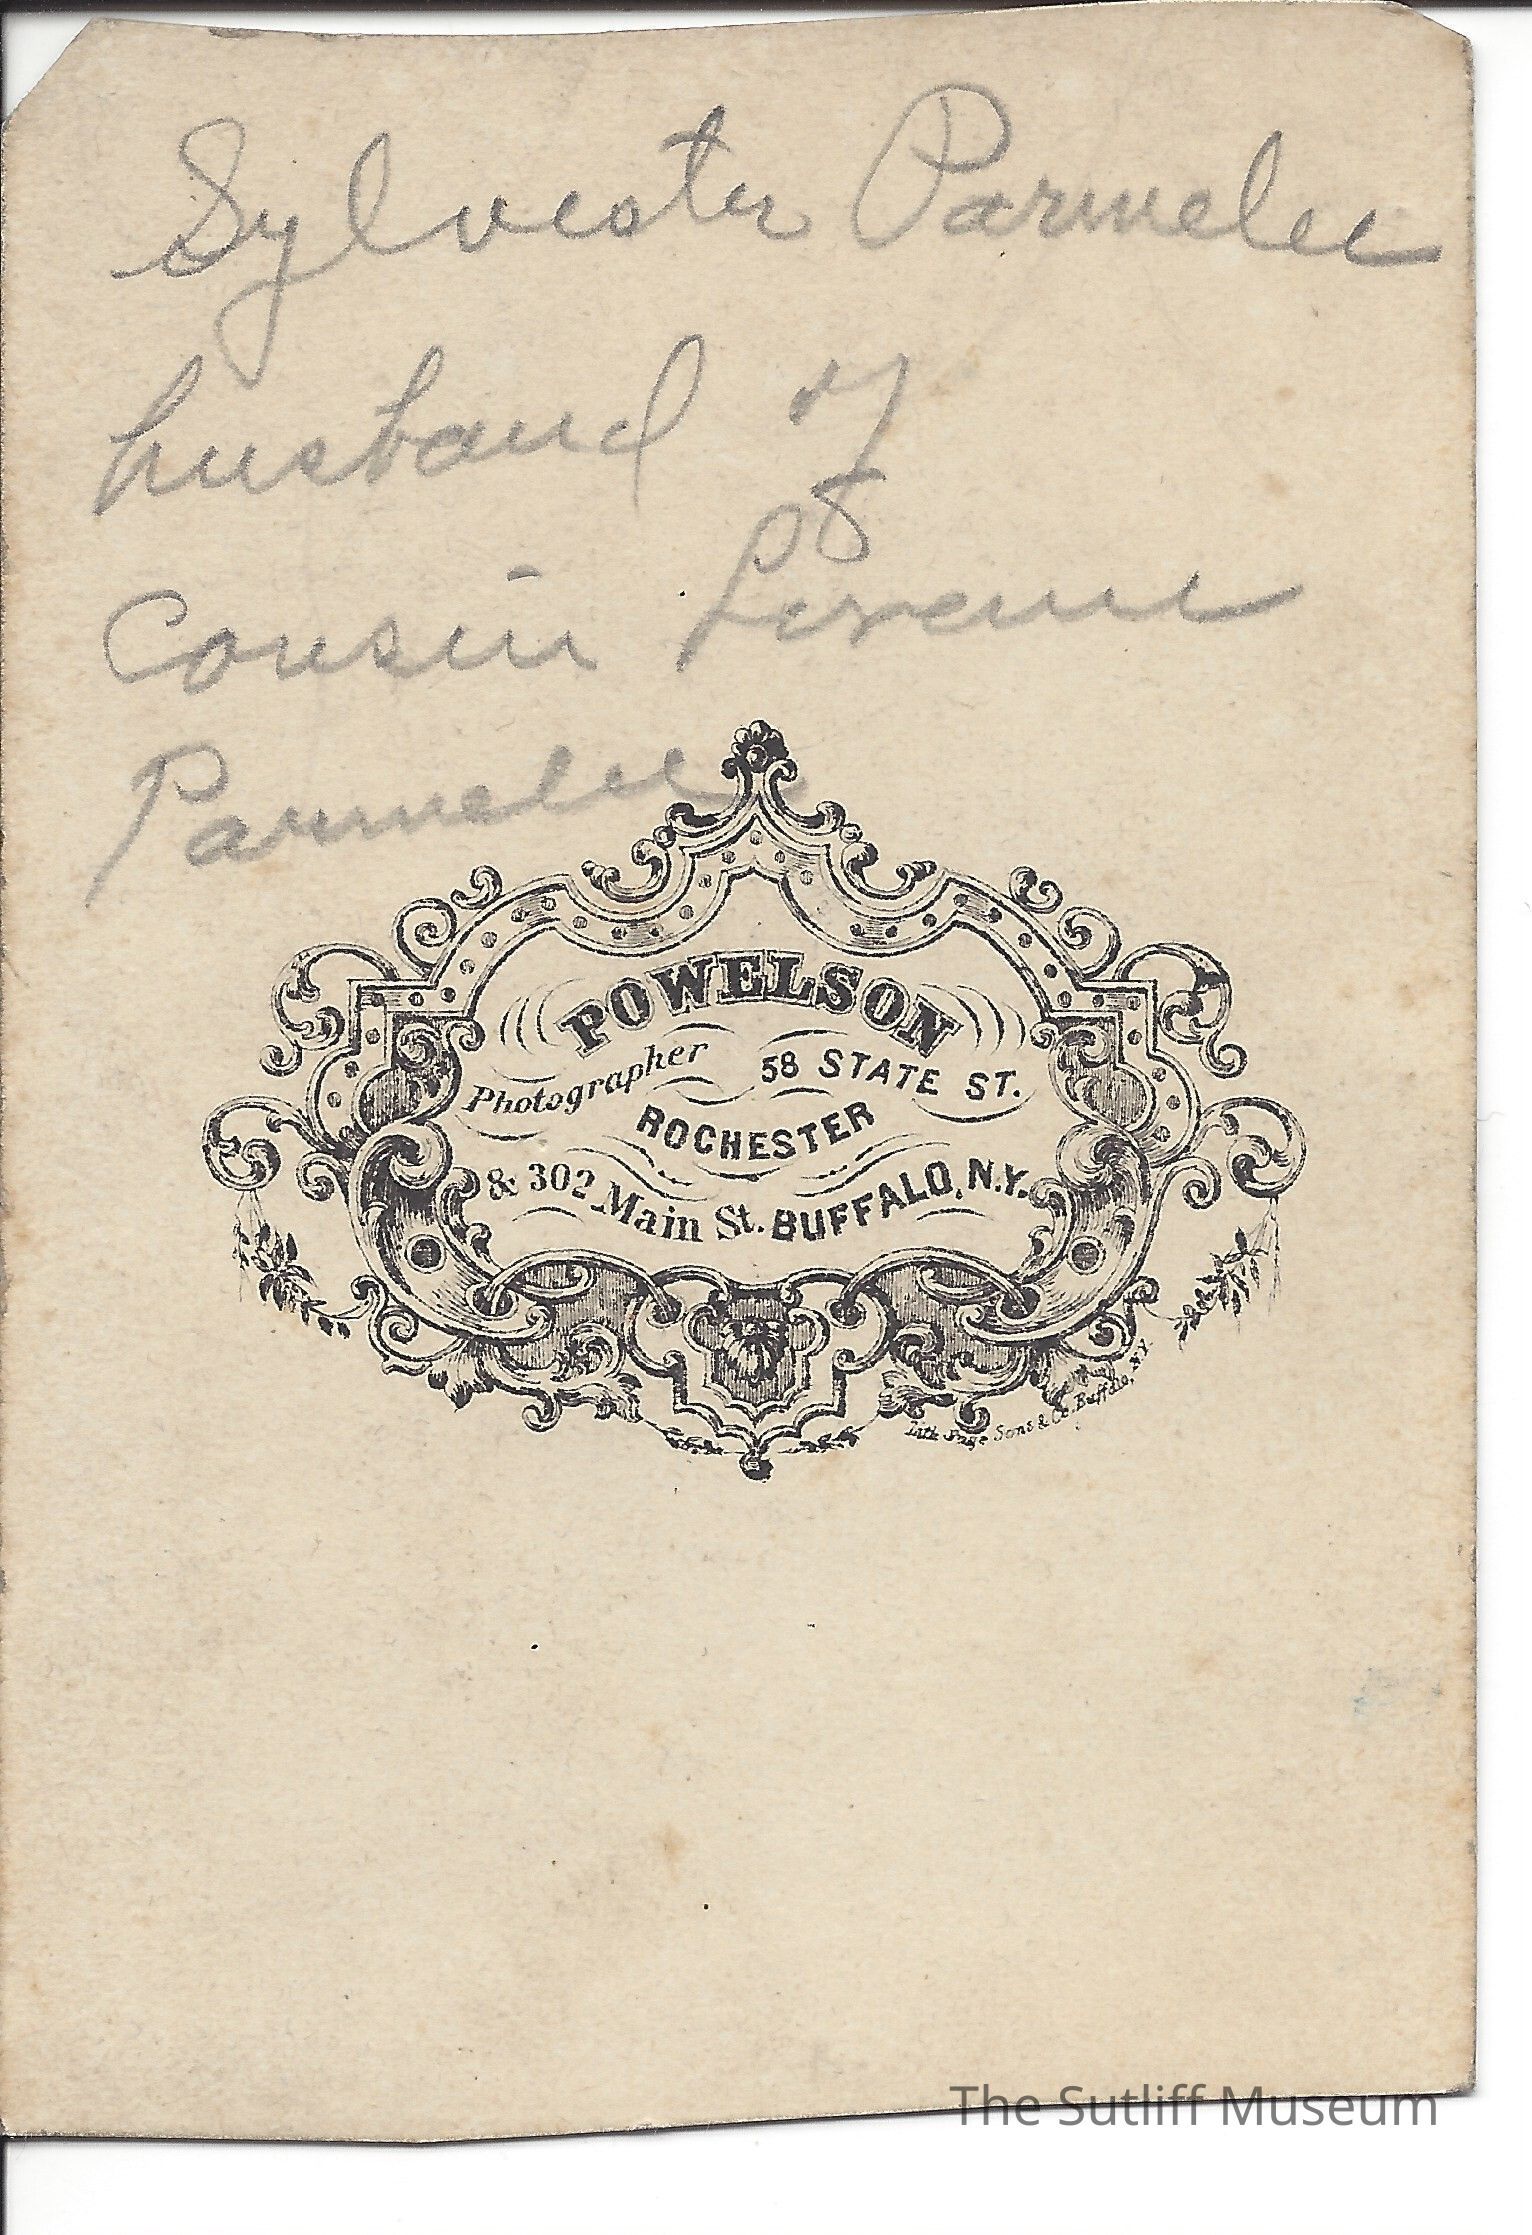 Sylvester Parmelee
husband of
Cousin
Parmelee
POWELSON
Photographer 58 STATE ST.
ROCHESTER
& 302 Main St. BUFFALO, N.Y.
Lith. Page Sons & Co. Buffalo, N.Y.
The Sutliff Museum